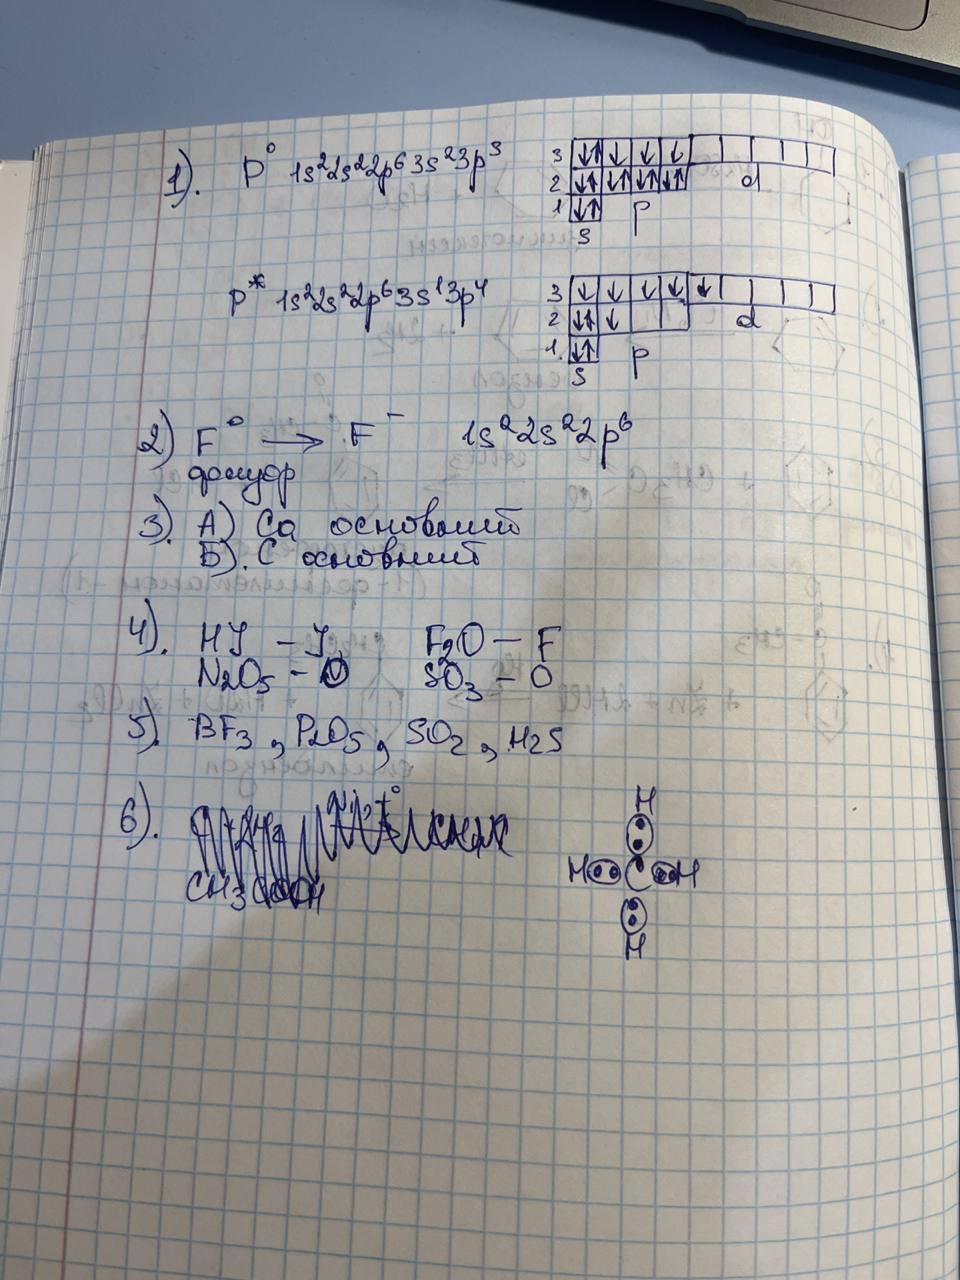 1). P⁰ 1s²2s²2p⁶3s²3p³
3 ↓↑ ↓ ↓ ↓
2 ↓↑ ↓↑ ↓↑ ↓↑ d
1 ↓↑ p
s
P* 1s²2s²2p⁶3s¹3p⁴
3 ↓ ↓ ↓ ↓ ↓
2 ↓↑ ↓ d
1. ↓↑ p
s
2) F⁰ → F⁻ 1s²2s²2p⁶
донор
3). А) Ca основний
Б). C основний
4). HJ – J, F₂O – F
N₂O₅ – O SO₃ – O
5). BF₃, P₂O₅, SO₂, H₂S
6).
CH₃COOH
H
H C H
H